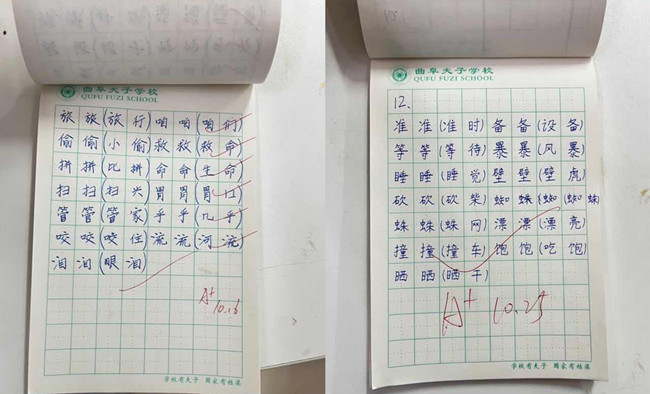 曲阜夫子学校
QUFU FUZI SCHOOL
旅 旅(旅 行) 咱 咱(咱 们)
偷 偷(小 偷) 救 救(救 命)
拼 拼(比 拼) 命 命(生 命)
扫 扫(扫 兴) 胃 胃(胃 口)
管 管(管 家) 乎 乎(几 乎)
咬 咬(咬 住) 流 流(河 流)
泪 泪(眼 泪)
A+
10.16
学校有夫子 国家有栋梁
曲阜夫子学校
QUFU FUZI SCHOOL
12、
准 准(准 时) 备 备(设 备)
等 等(等 待) 暴 暴(风 暴)
睡 睡(睡 觉) 壁 壁(壁 虎)
砍 砍(砍 柴) 蜘 蜘(蜘 蛛)
蛛 蛛(蛛 网) 漂 漂(漂 亮)
撞 撞(撞 车) 饱 饱(吃 饱)
晒 晒(晒 干)
A+ 10.25
学校有夫子 国家有栋梁